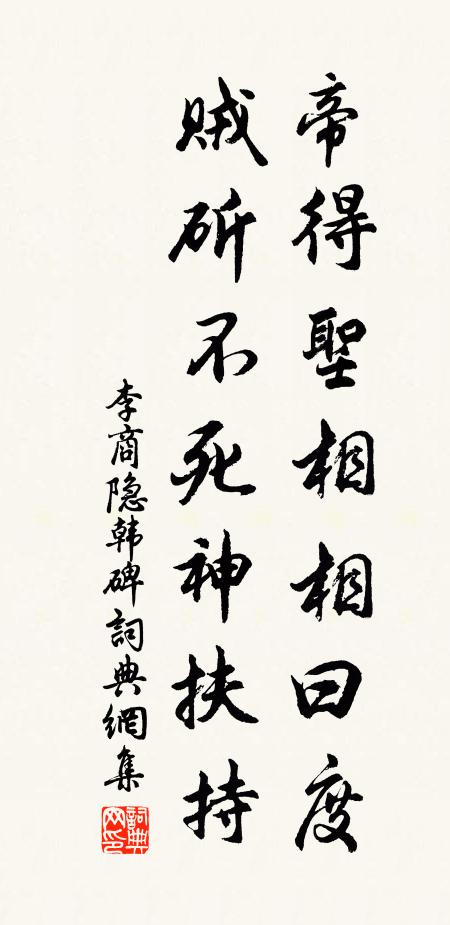 帝得聖相相曰度
賊斫不死神扶持
李商隐韩碑詞典網集
詞典
网印